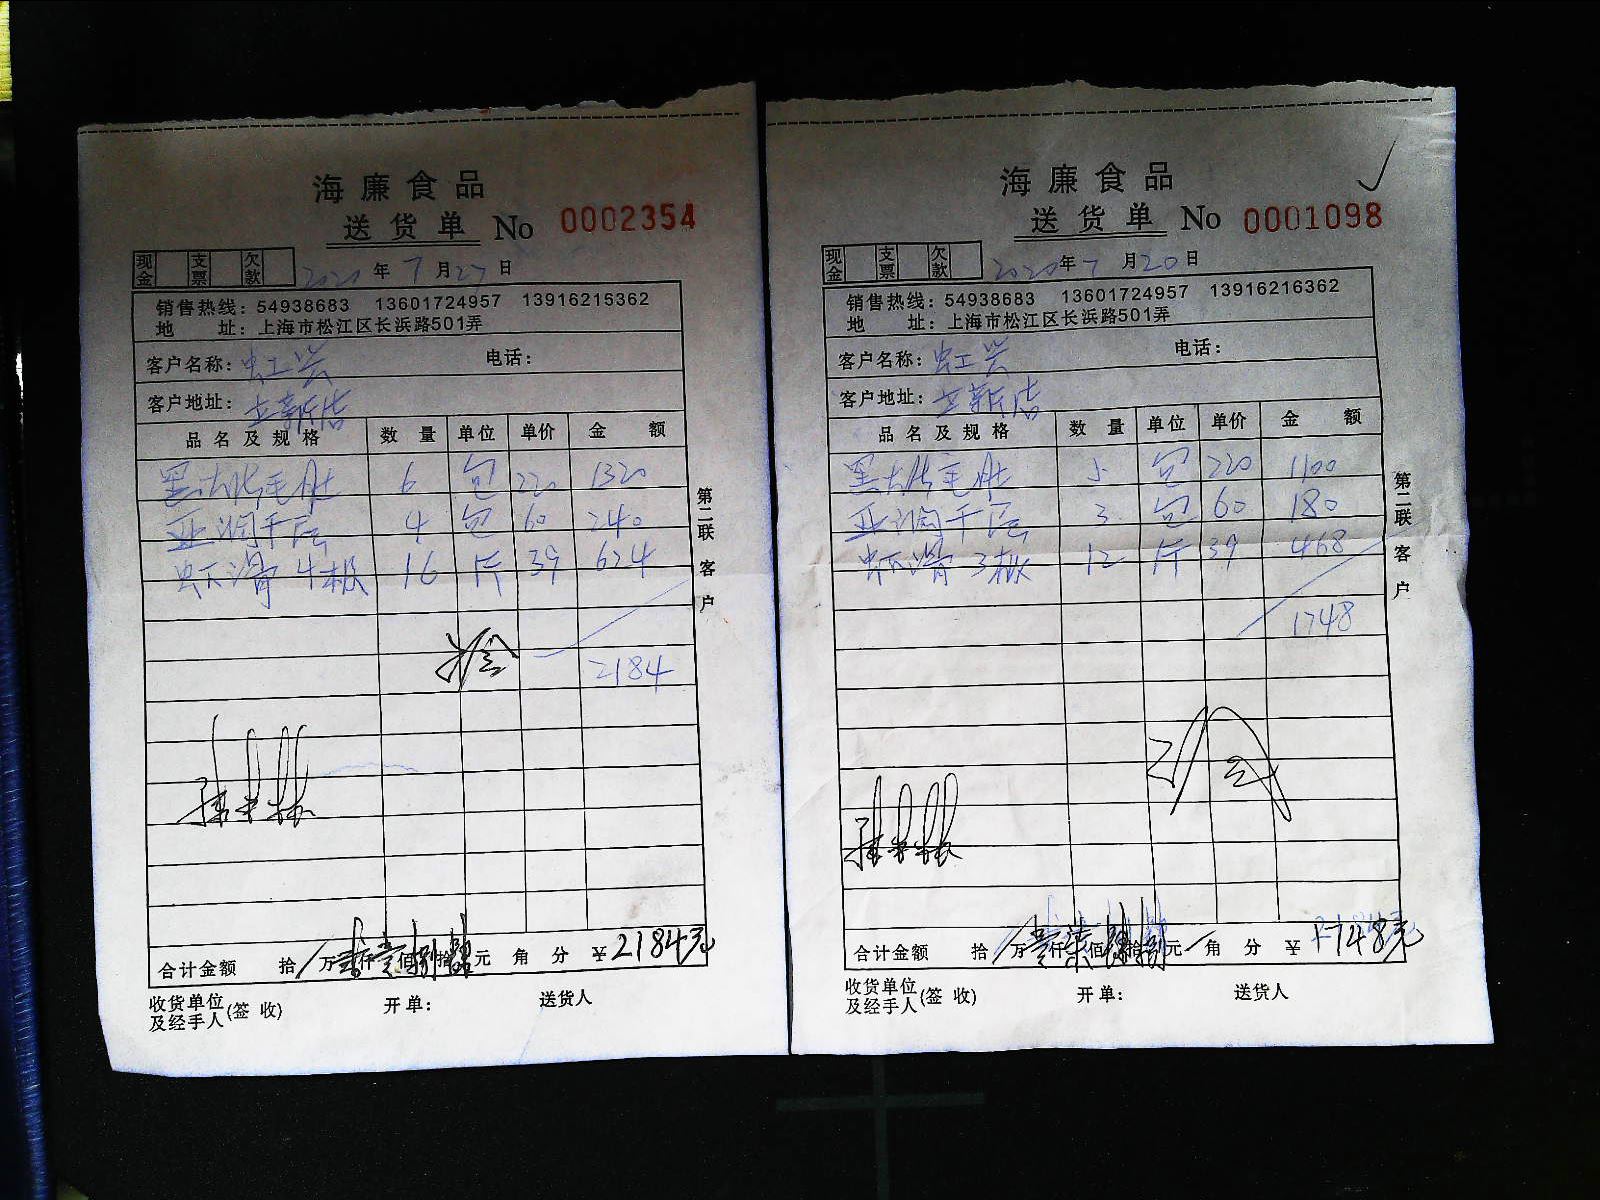 海廉食品
送货单 No 0002354
现金 支票 欠款 2020年7月27日
销售热线：54938683 13601724957 13916215362
地 址：上海市松江区长浜路501弄
客户名称： 电话：
客户地址：
品名及规格 数量 单位 单价 金额
黑大片毛肚 6 包 220 1320
4 包 60 240
虾滑 16 斤 39 624
2184
合计金额 拾 万 仟 佰 拾 元 角 分 ¥2184元
收货单位及经手人(签收) 开单： 送货人
第二联 客户
海廉食品
送货单 No 0001098
现金 支票 欠款 2020年7月20日
销售热线：54938683 13601724957 13916216362
地 址：上海市松江区长浜路501弄
客户名称： 电话：
客户地址：
品名及规格 数量 单位 单价 金额
黑大片毛肚 5 包 220 1100
3 包 60 180
虾滑 12 斤 39 468
1748
合计金额 拾 万 仟 佰 拾 元 角 分 ¥1748元
收货单位及经手人(签收) 开单： 送货人
第二联 客户